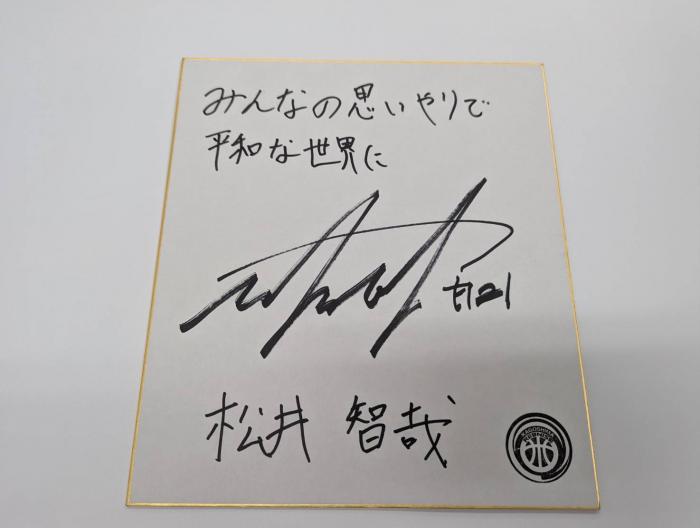 みんなの思いやりで
平和な世界に
#21
松井 智哉
KAGOSHIMA
REBNISE